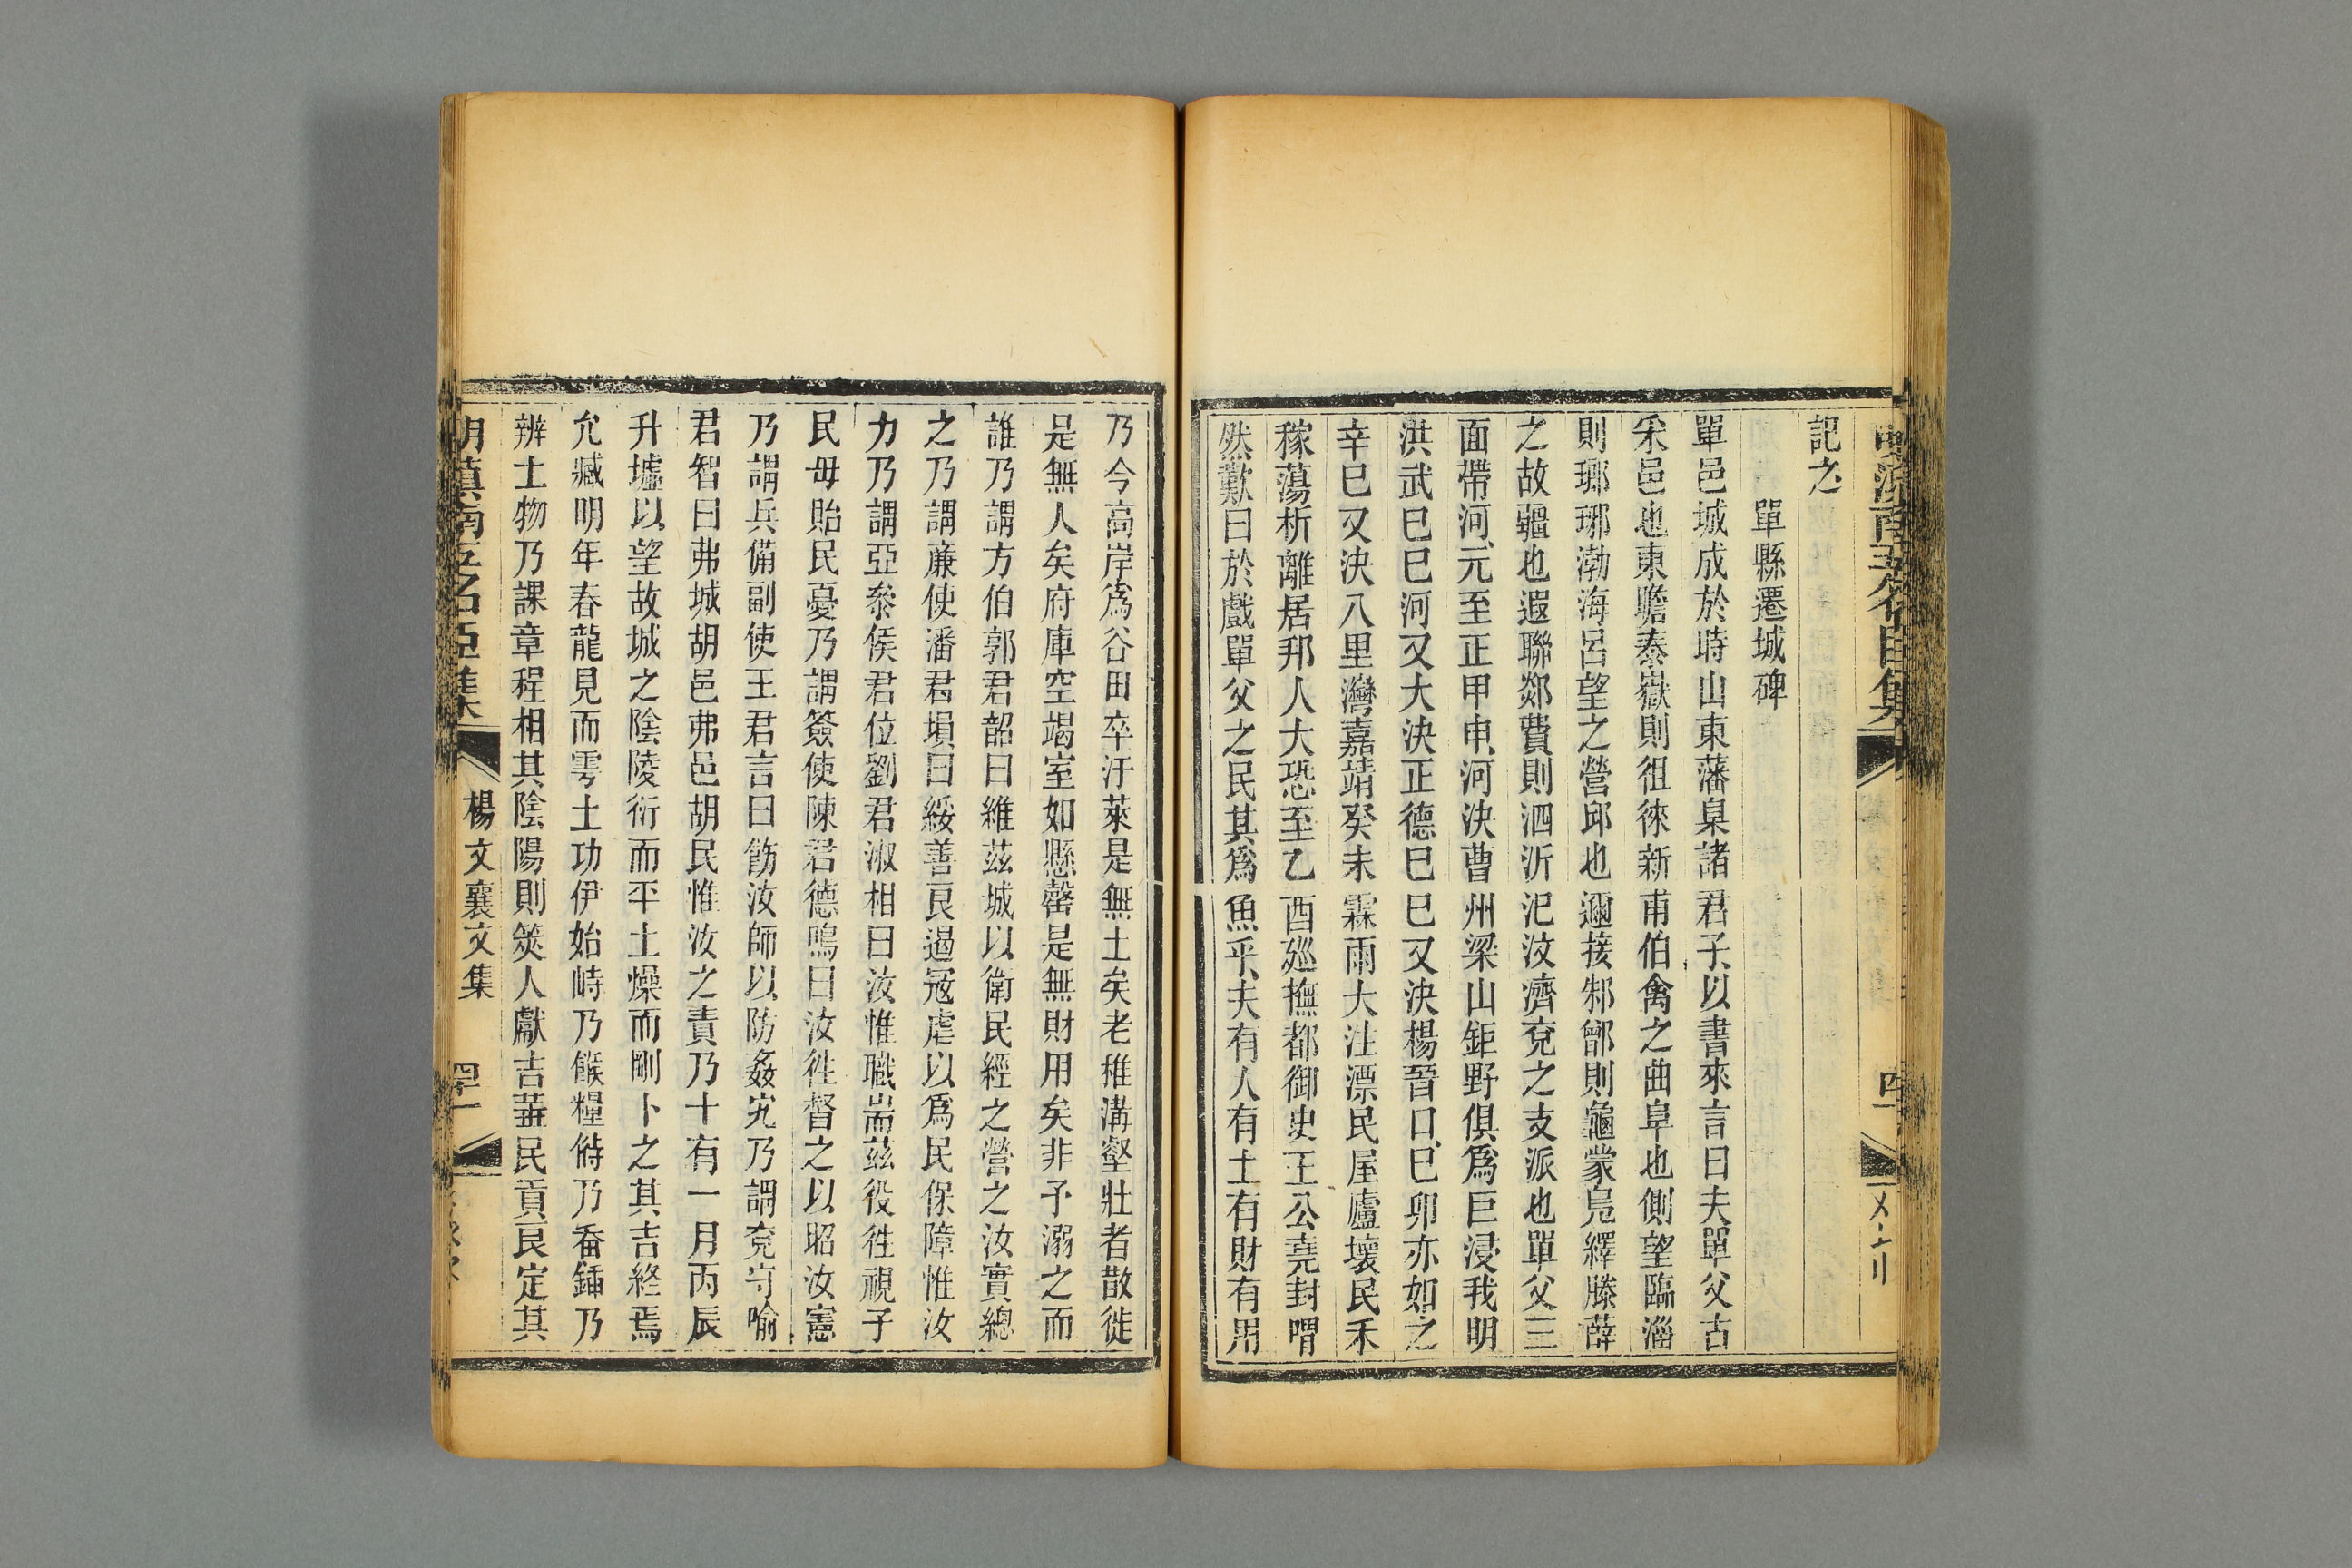 記之
單縣遷城碑
單邑城成於時山東藩臬諸君子以書來言曰夫單父古
采邑也東瞻泰嶽則徂徠新甫伯禽之曲阜也側望臨淄
則瑯琊渤海呂望之營邱也邇接邾鄫則龜蒙鳧繹滕薛
之故疆也遐聯郯費則泗沂汜汶濟兗之支派也單父三
面帶河元至正甲申河決曹州梁山鉅野俱爲巨浸我明
洪武巳巳河又大決正德巳巳又決楊晉口巳卯亦如之
辛巳又決八里灣嘉靖癸未霖雨大注漂民屋廬壞民禾
稼蕩析離居邦人大恐至乙酉廵撫都御史王公堯封喟
然歎曰於戲單父之民其爲魚乎夫有人有土有財有用
乃今高岸爲谷田卒汙萊是無土矣老稚溝壑壯者散徙
是無人矣府庫空竭室如懸罄是無財用矣非予溺之而
誰乃謂方伯郭君韶曰維茲城以衛民經之營之汝實總
之乃謂廉使潘君塤曰綏善良遏冦虐以爲民保障惟汝
力乃謂亞叅侯君位劉君淑相曰汝惟職耑茲役徃視子
民毋貽民憂乃謂簽使陳君德鳴曰汝徃督之以昭汝憲
乃謂兵備副使王君言曰飭汝師以防姦宄乃謂兗守喻
君智曰弗城胡邑弗邑胡民惟汝之責乃十有一月丙辰
升墟以望故城之陰陵衍而平土燥而剛卜之其吉終焉
允臧明年春龍見而雩土功伊始峙乃餱糧偫乃畚鍤乃
辨土物乃課章程相其陰陽則筴人獻吉菙民貢良定其
楊文襄文集